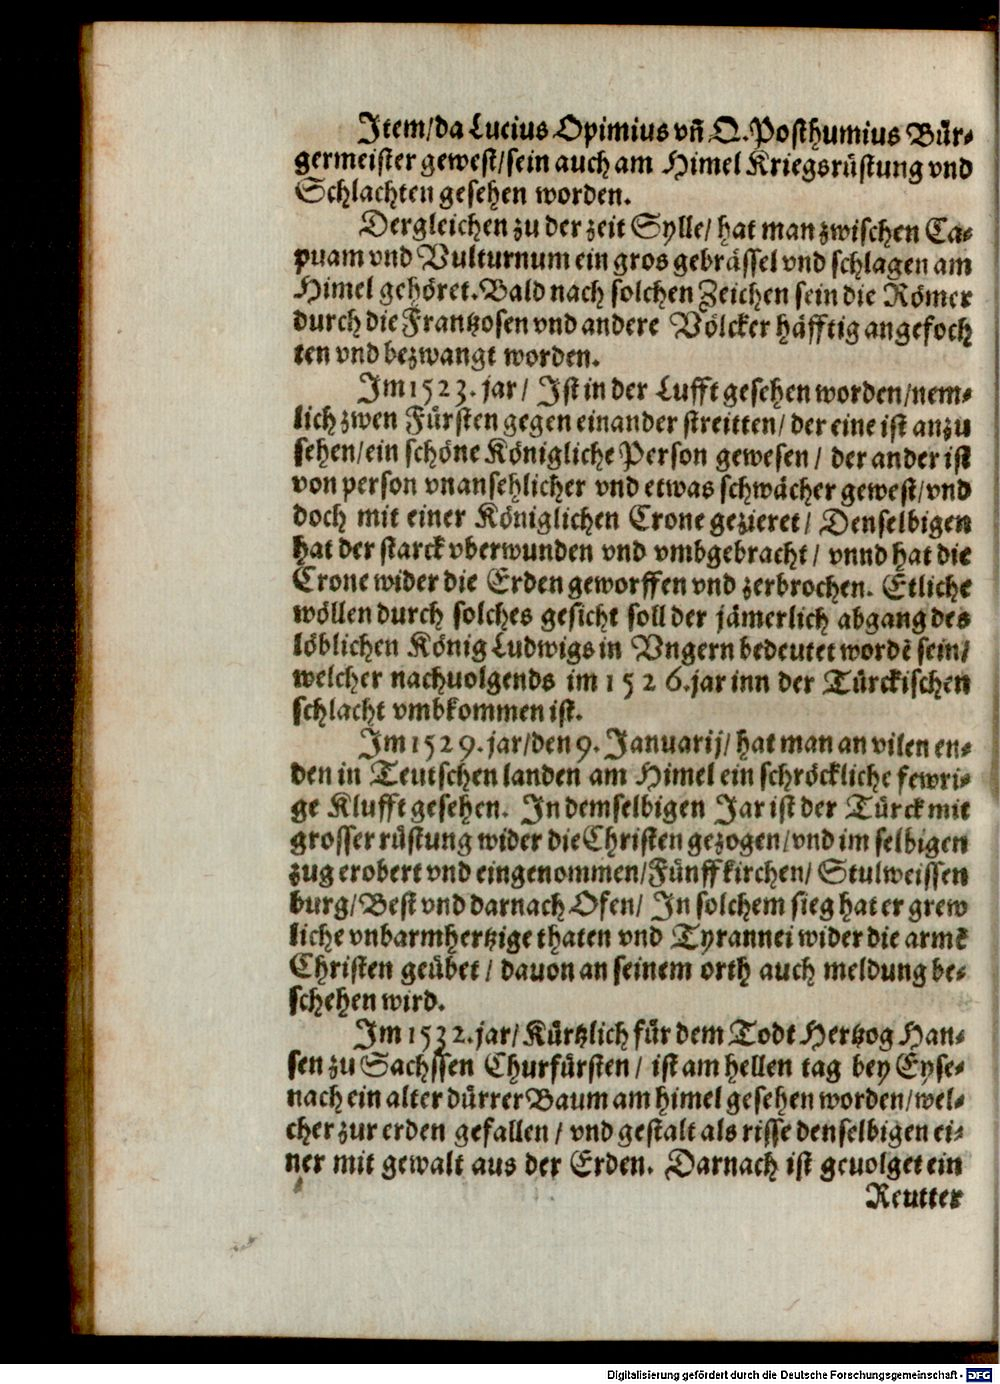 Item/da Lucius Opimius vñ Q. Posthumius Bür-
germeister gewest/sein auch am Himel Kriegsrüstung vnd
Schlachten gesehen worden.
Dergleichen zu der zeit Sylle/ hat man zwischen Ca-
puam vnd Vulturnum ein gros gebrässel vnd schlagen am
Himel gehöret. Bald nach solchen Zeichen sein die Römer
durch die Frantzosen vnd andere Völcker häfftig angefoch
ten vnd bezwangt worden.
Im 1523. jar/ Ist in der Lufft gesehen worden/nem-
lich zwen Fürsten gegen einander streitten/ der eine ist anzu
sehen/ein schöne Königliche Person gewesen/ der ander ist
von person vnansehlicher vnd etwas schwächer gewest/vnd
doch mit einer Königlichen Crone gezieret/ Denselbigen
hat der starck vberwunden vnd vmbgebracht/ vnnd hat die
Crone wider die Erden geworffen vnd zerbrochen. Etliche
wöllen durch solches gesicht soll der jämerlich abgang des
löblichen König Ludwigs in Vngern bedeutet wordē sein/
welcher nachuolgends im 1526. jar inn der Türckischen
schlacht vmbkommen ist.
Im 1529. jar/den 9. Januarij/ hat man an vilen en-
den in Teutschen landen am Himel ein schröckliche fewri-
ge Klufft gesehen. In demselbigen Jar ist der Türck mit
grosser rüstung wider die Christen gezogen/vnd im selbigen
zug erobert vnd eingenommen/Fünffkirchen/ Stulweissen
burg/Best vnd darnach Ofen/ In solchem sieg hat er grew
liche vnbarmhertzige thaten vnd Tyrannei wider die armē
Christen geübet/ dauon an seinem orth auch meldung be-
schehen wird.
Im 1532. jar/ Kürtzlich für dem Todt Hertzog Han-
sen zu Sachssen Churfürsten/ ist am hellen tag bey Eyse-
nach ein alter dürrer Baum am himel gesehen worden/wel-
cher zur erden gefallen/ vnd gestalt als risse denselbigen ei-
ner mit gewalt aus der Erden. Darnach ist geuolget ein
Reutter
Digitalisierung gefördert durch die Deutsche Forschungsgemeinschaft - DFG